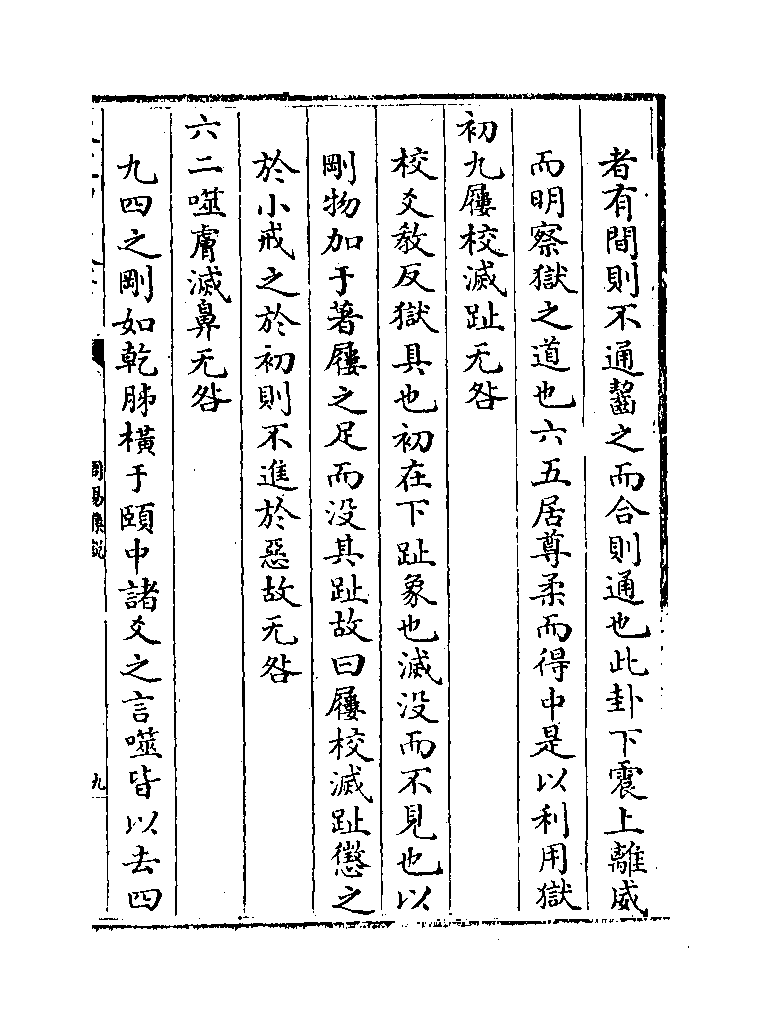 者有間則不通齧之而合則通也此卦下震上離威
而明察獄之道也六五居尊柔而得中是以利用獄
初九屨校滅趾无咎
校爻教反獄具也初在下趾象也滅没而不見也以
剛物加于著屨之足而没其趾故曰屨校滅趾懲之
於小戒之於初則不進於惡故无咎
六二噬膚滅鼻无咎
九四之剛如乾胏橫于頤中諸爻之言噬皆以去四
周易集說
九